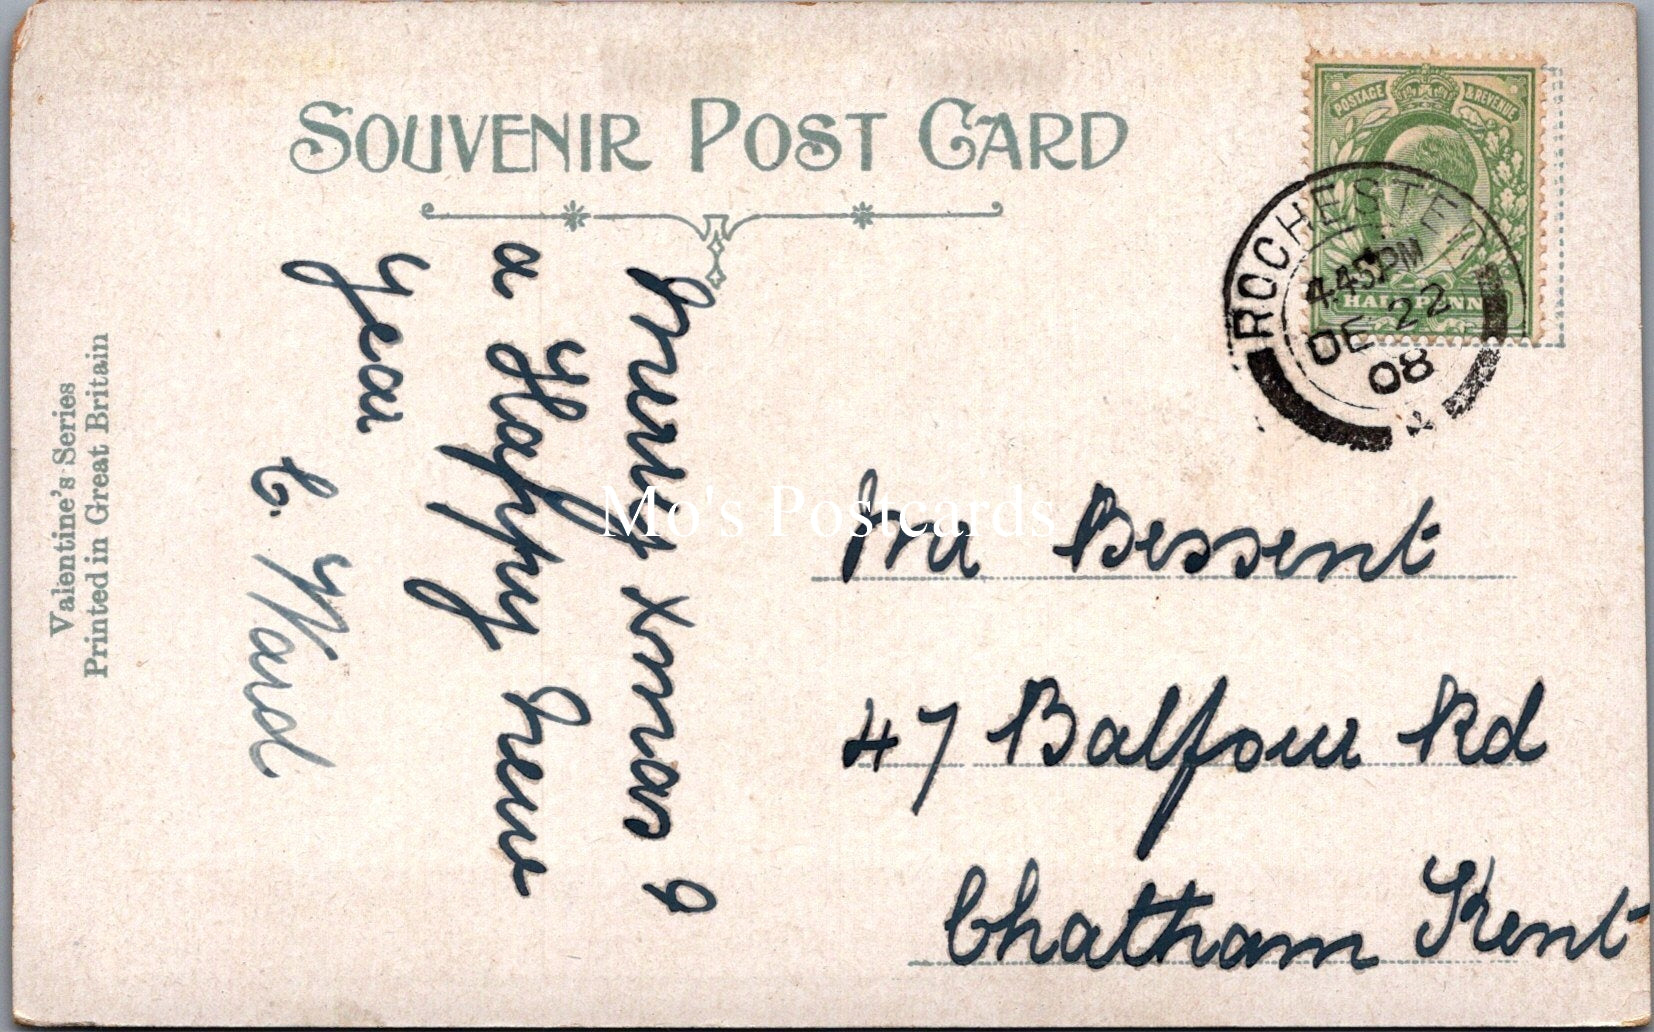 SOUVENIR POST CARD
POSTAGE & REVENUE
HALFPENNY
ROCHESTER
4.45PM
DE 22
08
Merry Xmas &
a Happy New
Year
C. Ward
Bessent
47 Balfour Rd
Chatham Kent
Valentine's Series
Printed in Great Britain
Mo's Postcards